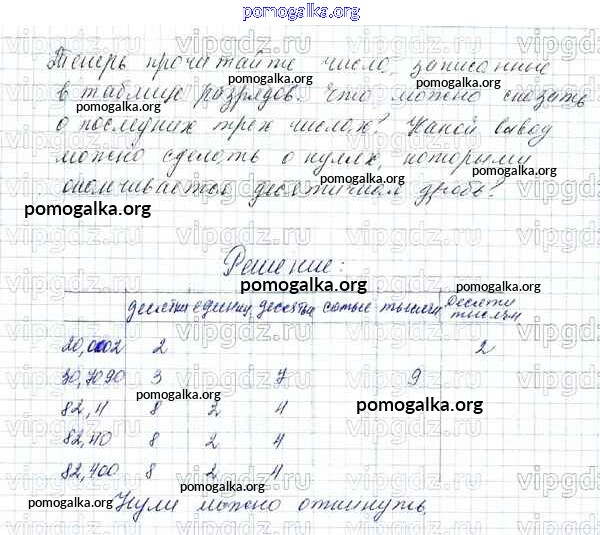 pomogalka.org
Теперь прочитайте числа, записанные
в таблице разрядов. Что можно сказать
о последних трех числах? Какой вывод
можно сделать о нулях, которыми
оканчивается десятичная дробь?
Решение:
десятки единиц. десяты сотые тысячн Десяти тысячн
20,0002 2 2
30,7090 3 7 9
82,4 8 2 4
82,40 8 2 4
82,400 8 2 4
Нули можно откинуть.